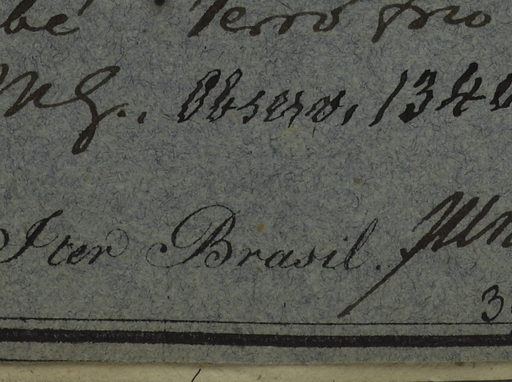 bé Terro frio
Observ. 134
Iter Brasil.
3